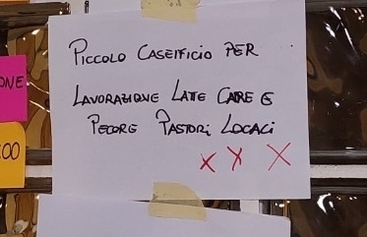 PICCOLO CASEIFICIO PER
LAVORAZIONE LATE CAPRE E
PECORE PASTORI LOCALI
X X X
ONE
:00